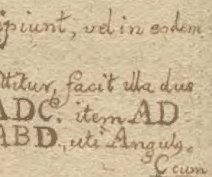 ipiunt, vel in eodem
ttitur, facit illa duo
ADC. item AD
ABD., uti Angulg.
C cum